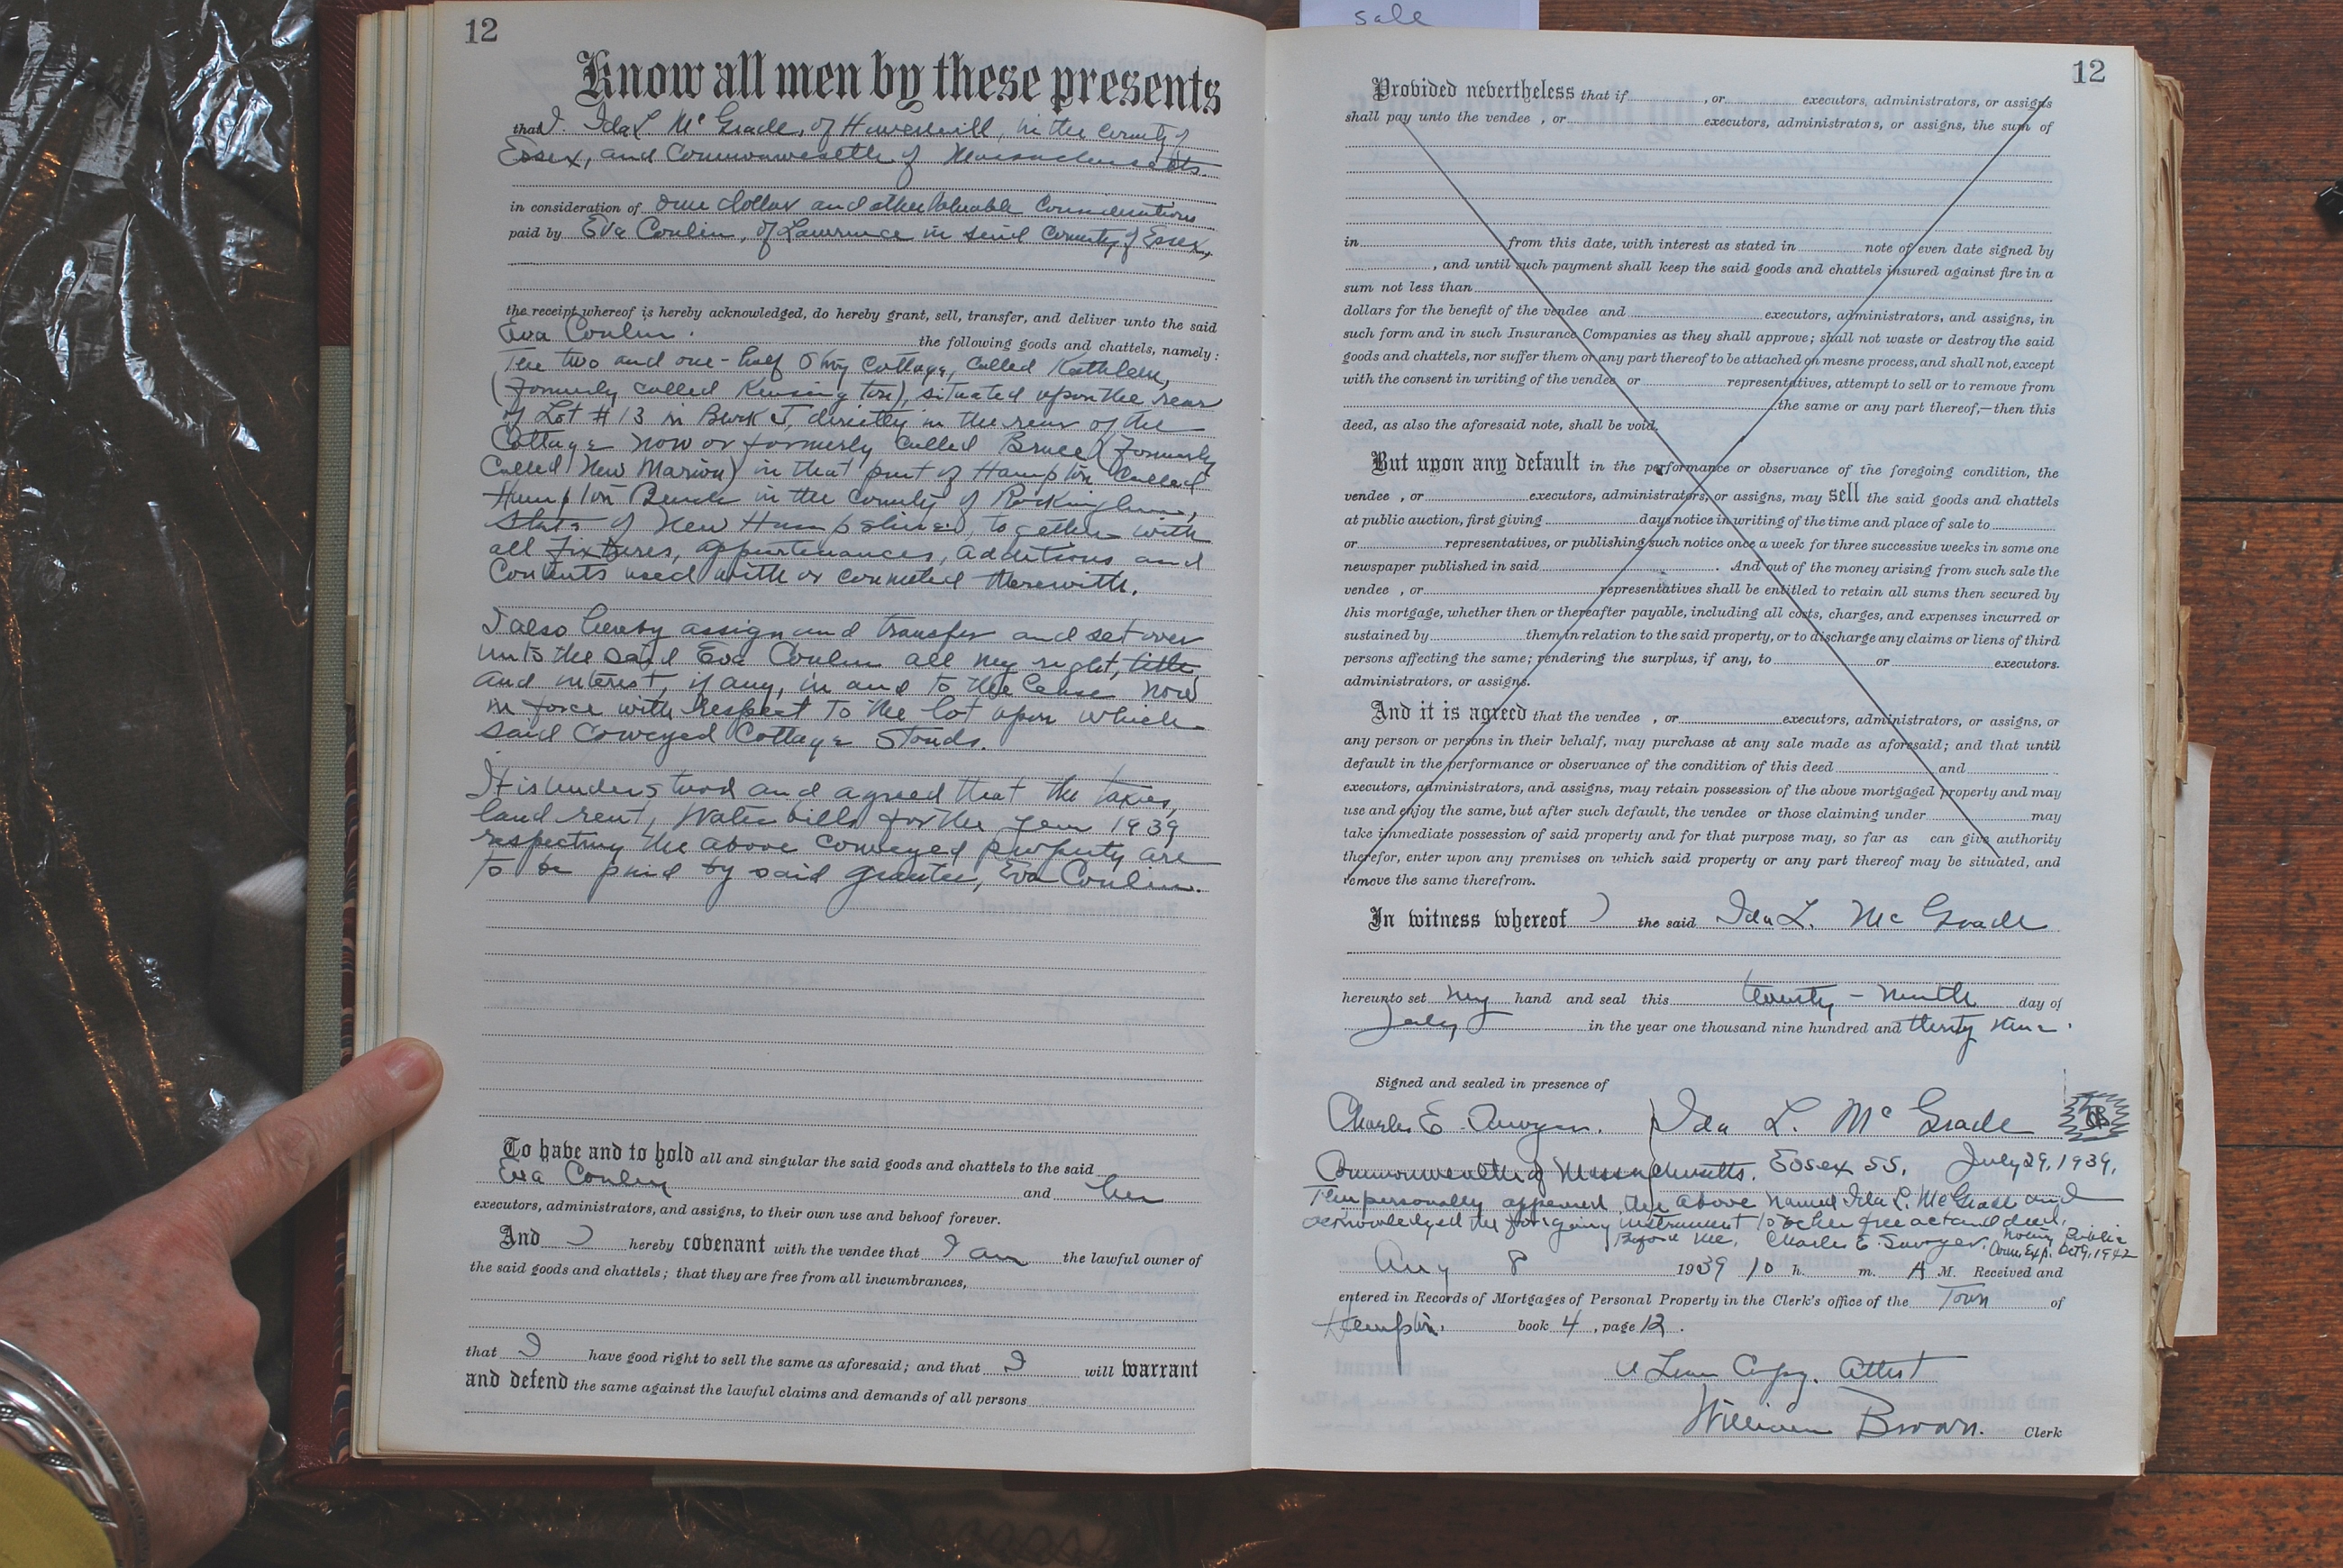 sale
12
Know all men by these presents
that I. Ida L. McGrade, of Haverhill, in the county of
Essex, and Commonwealth of Massachusetts
in consideration of one dollar and other valuable considerations
paid by Eva Conlin, of Lawrence in said County of Essex
the receipt whereof is hereby acknowledged, do hereby grant, sell, transfer, and deliver unto the said
Eva Conlin. the following goods and chattels, namely:
The two and one-half Story Cottage, called Kathleen,
(formerly called Kensington), situated upon the rear
of Lot #13 in Block J, directly in the rear of the
Cottage now or formerly called Bruce (formerly
called New Marion) in that part of Hampton called
Hampton Beach in the County of Rockingham,
State of New Hampshire, together with
all fixtures, appurtenances, additions and
contents used with or connected therewith.
I also hereby assign and transfer and set over
unto the said Eva Conlin all my right, title,
and interest, if any, in and to the lease now
in force with respect to the lot upon which
said conveyed Cottage stands.
It is understood and agreed that the taxes,
land rent, water bills for the year 1939
respecting the above conveyed property are
to be paid by said grantee, Eva Conlin.
To have and to hold all and singular the said goods and chattels to the said
Eva Conlin and her
executors, administrators, and assigns, to their own use and behoof forever.
And I hereby covenant with the vendee that I am the lawful owner of
the said goods and chattels; that they are free from all incumbrances,
that I have good right to sell the same as aforesaid; and that I will warrant
and defend the same against the lawful claims and demands of all persons
12
Provided nevertheless that if , or executors, administrators, or assigns
shall pay unto the vendee , or executors, administrators, or assigns, the sum of
in from this date, with interest as stated in note of even date signed by
, and until such payment shall keep the said goods and chattels insured against fire in a
sum not less than
dollars for the benefit of the vendee and executors, administrators, and assigns, in
such form and in such Insurance Companies as they shall approve; shall not waste or destroy the said
goods and chattels, nor suffer them or any part thereof to be attached on mesne process, and shall not, except
with the consent in writing of the vendee or representatives, attempt to sell or to remove from
the same or any part thereof,—then this
deed, as also the aforesaid note, shall be void.
But upon any default in the performance or observance of the foregoing condition, the
vendee , or executors, administrators, or assigns, may sell the said goods and chattels
at public auction, first giving days notice in writing of the time and place of sale to
or representatives, or publishing such notice once a week for three successive weeks in some one
newspaper published in said . And out of the money arising from such sale the
vendee , or representatives shall be entitled to retain all sums then secured by
this mortgage, whether then or thereafter payable, including all costs, charges, and expenses incurred or
sustained by them in relation to the said property, or to discharge any claims or liens of third
persons affecting the same; rendering the surplus, if any, to or executors.
administrators, or assigns.
And it is agreed that the vendee , or executors, administrators, or assigns, or
any person or persons in their behalf, may purchase at any sale made as aforesaid; and that until
default in the performance or observance of the condition of this deed and
executors, administrators, and assigns, may retain possession of the above mortgaged property and may
use and enjoy the same, but after such default, the vendee or those claiming under may
take immediate possession of said property and for that purpose may, so far as can give authority
therefor, enter upon any premises on which said property or any part thereof may be situated, and
remove the same therefrom.
In witness whereof I the said Ida L. McGrade
hereunto set my hand and seal this twenty-ninth day of
July in the year one thousand nine hundred and thirty nine.
Signed and sealed in presence of
Charles E. Sawyer. Ida L. McGrade
Commonwealth of Massachusetts. Essex SS. July 29, 1939.
Then personally appeared the above named Ida L. McGrade and
acknowledged the foregoing instrument to be her free act and deed,
Before me, Charles E. Sawyer. Notary Public
Com. Exp. Oct 9, 1942
Aug 8 1939 10 h. m. A M. Received and
entered in Records of Mortgages of Personal Property in the Clerk's office of the Town of
Hampton. book 4 , page 12 .
A True Copy. Attest
William Brown. Clerk